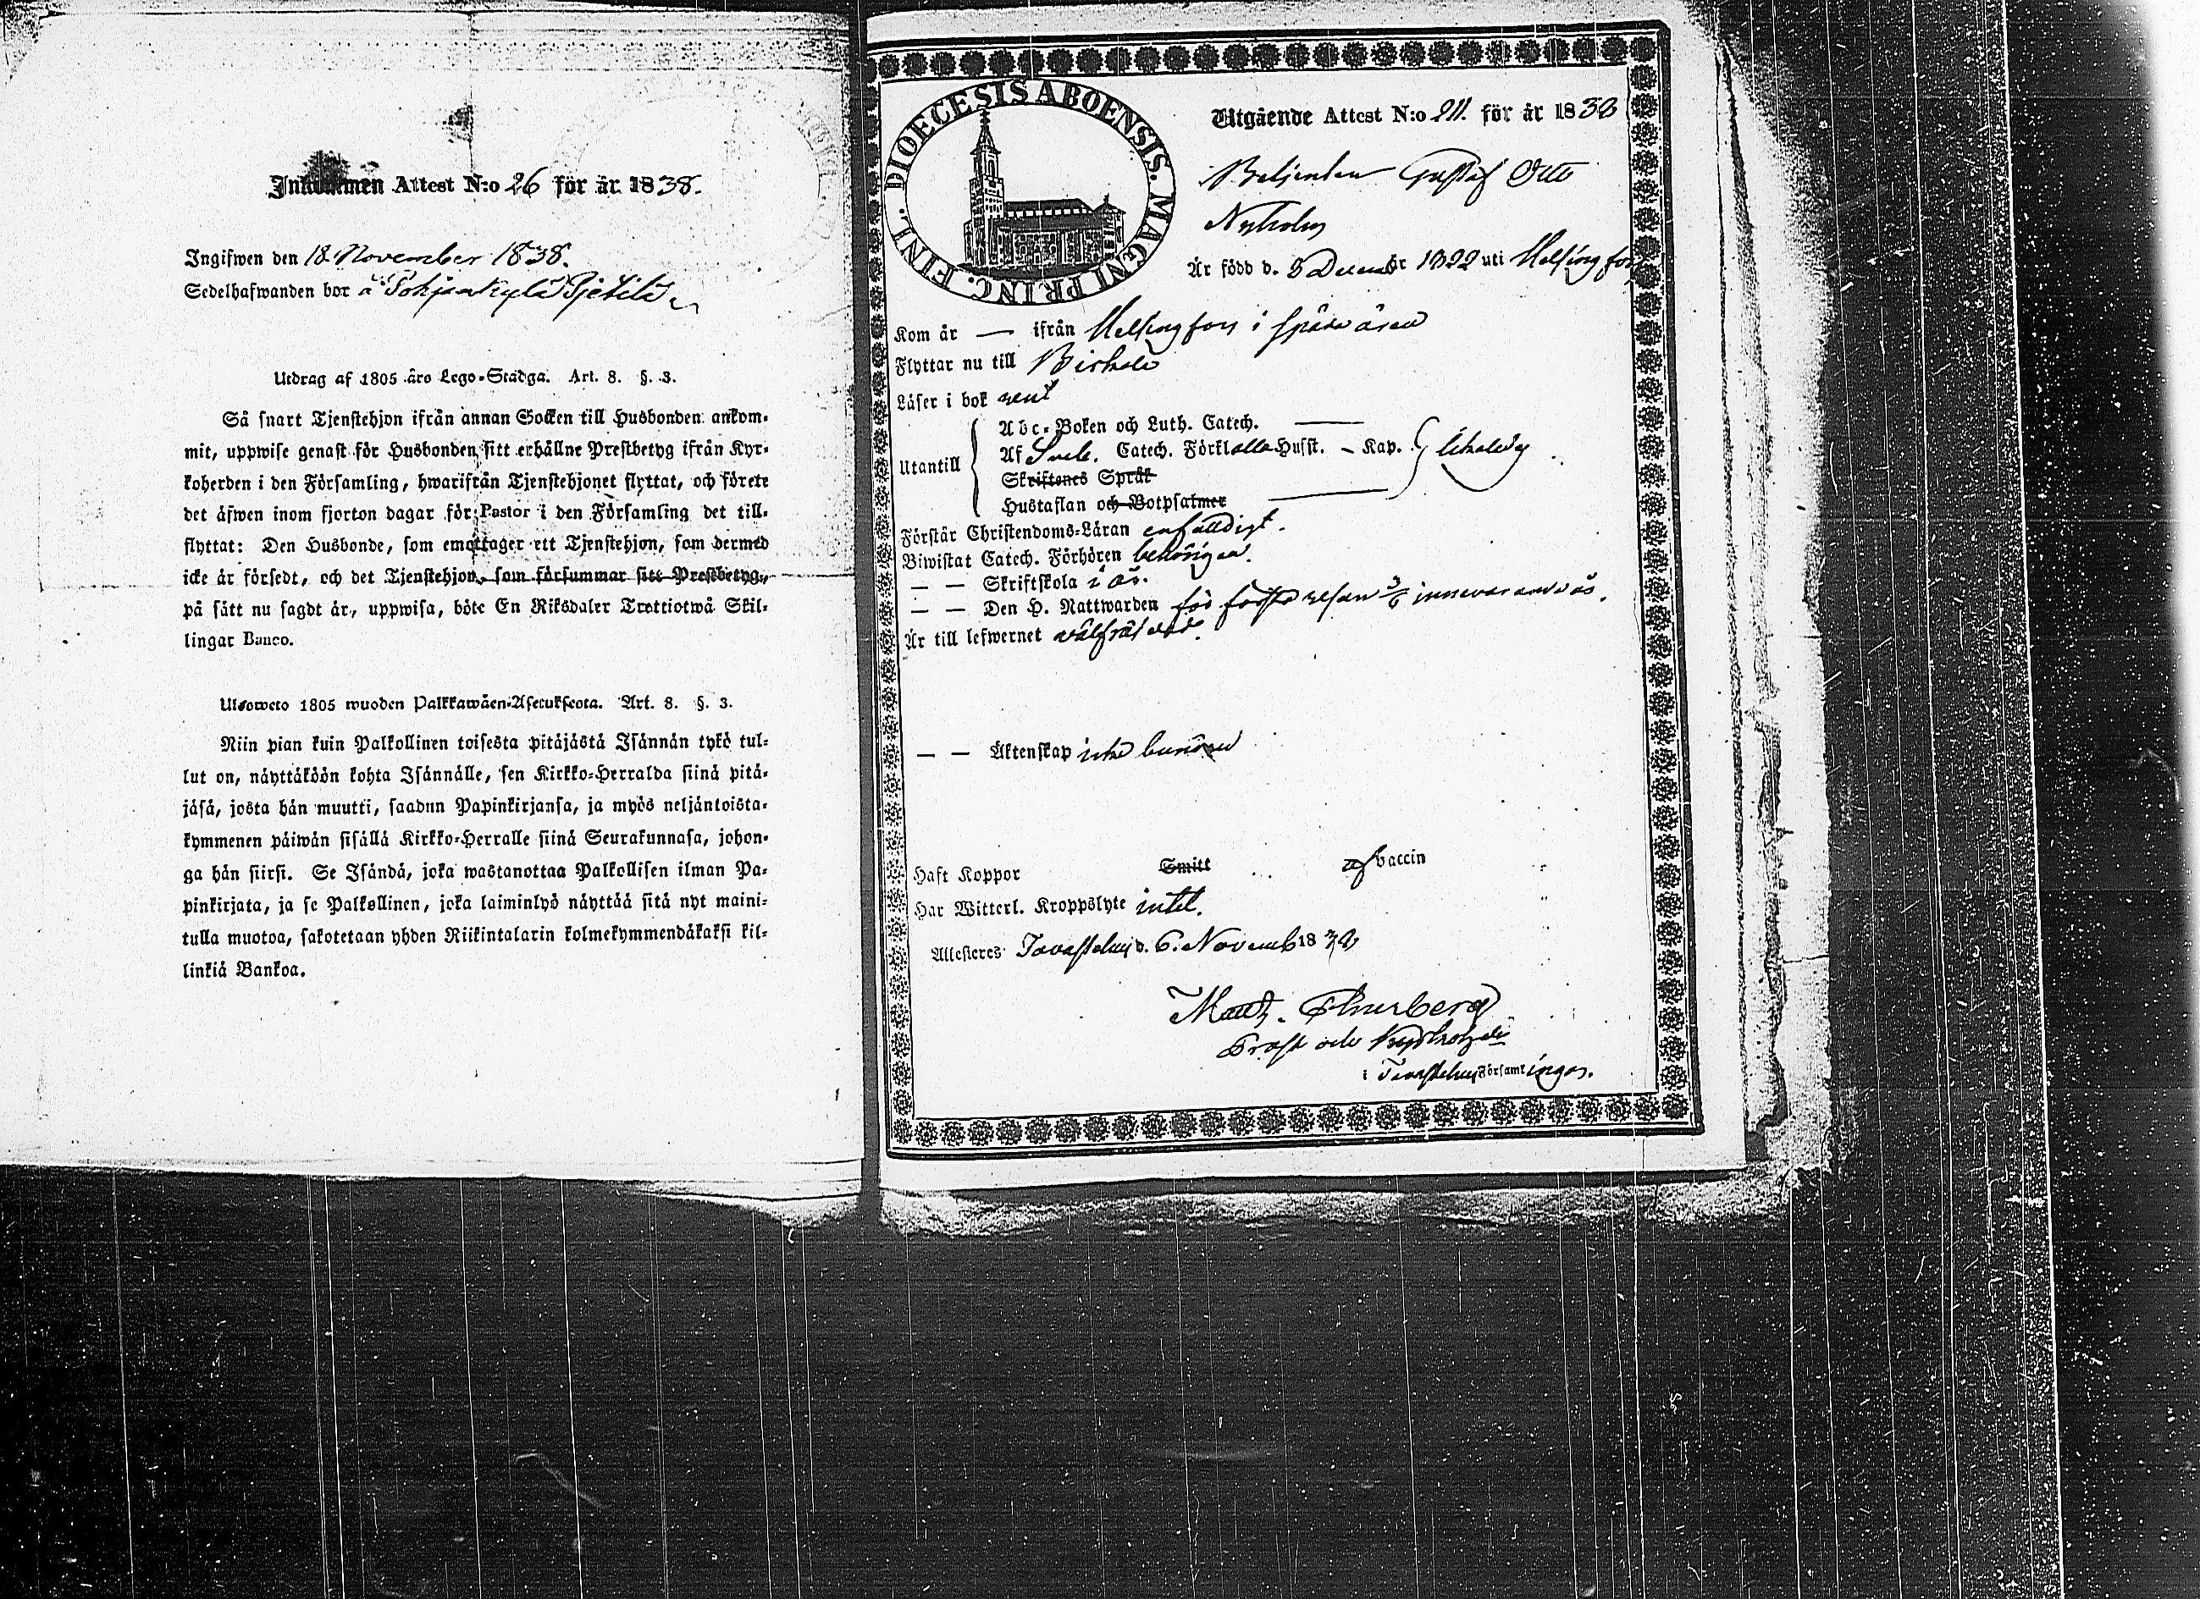 Inkommen Attest N:o 26 för år 1838.
Ingifwen den 18 November 1838.
Sedelhafwanden bor å Pohjankylä Pjetilä
Utdrag af 1805 års Lego-Stadga. Art. 8. §. 3.
Så snart Tjenstehjon ifrån annan Socken till Husbonden ankom-
mit, uppwise genast för Husbonden sitt erhållne Prestbetyg ifrån Kyr-
koherden i den Församling, hwarifrån Tjenstehjonet flyttat, och förete
det äfwen inom fjorton dagar för Pastor i den Församling det till-
flyttat: Den Husbonde, som emottager ett Tjenstehjon, som dermed
icke är försedt, och det Tjenstehjon, som försummar sitt Prestbetyg,
på sätt nu sagdt är, uppwisa, böte En Riksdaler Trettiotwå Skil-
lingar Banco.
Ulosweto 1805 wuoden Palkkawäen-Asetuksesta. Art. 8. §. 3.
Niin pian kuin Palkollinen toisesta pitäjästä Isännän tykö tul-
lut on, näyttäköön kohta Isännälle, sen Kirkko-Herralda siinä pitä-
jäsä, josta hän muutti, saadun Papinkirjansa, ja myös neljäntoista-
kymmenen päiwän sisällä Kirkko-Herralle siinä Seurakunnasa, johon-
ga hän siirsi. Se Isändä, joka wastanottaa Palkollisen ilman Pa-
pinkirjata, ja se Palkollinen, joka laiminlyö näyttää sitä nyt maini-
tulla muotoa, sakotetaan yhden Riikintalarin kolmekymmendäkaksi kil-
linkiä Bankoa.
DIOECESIS ABOENSIS. MAGNI PRINC. FINL.
Utgående Attest N:o 211. för år 1838
Betjenten Gustaf Otto
Nyholm
Är född d. 8 Decemb år 1822 uti Helsingfors
Kom år — ifrån Helsingfors i späda åren
Flyttar nu till Birkala
Läser i bok rent
Utantill
Abc-Boken och Luth. Catech. —
Af Sveb. Catech. Förkl. alla Husst. – Kap.
Skriftenes Språk
Hustaflan och Botpsalmer —
Förstår Christendoms-Läran enfaldigt.
Biwistat Catech. Förhören behörigen.
— — Skriftskola i år.
— — Den H. Nattwarden för första resan innevarande år.
Är till lefwernet välfräjdad.
— — Äktenskap icke bunden
Haft Koppor Smitt af vaccin
Har Witterl. Kroppslyte intet.
Attesteres Tavastehus d. 6. Novemb 1838
Matth. Flnerberg
Prost och Kyrkoherde
i Tavastehus Församlingar.